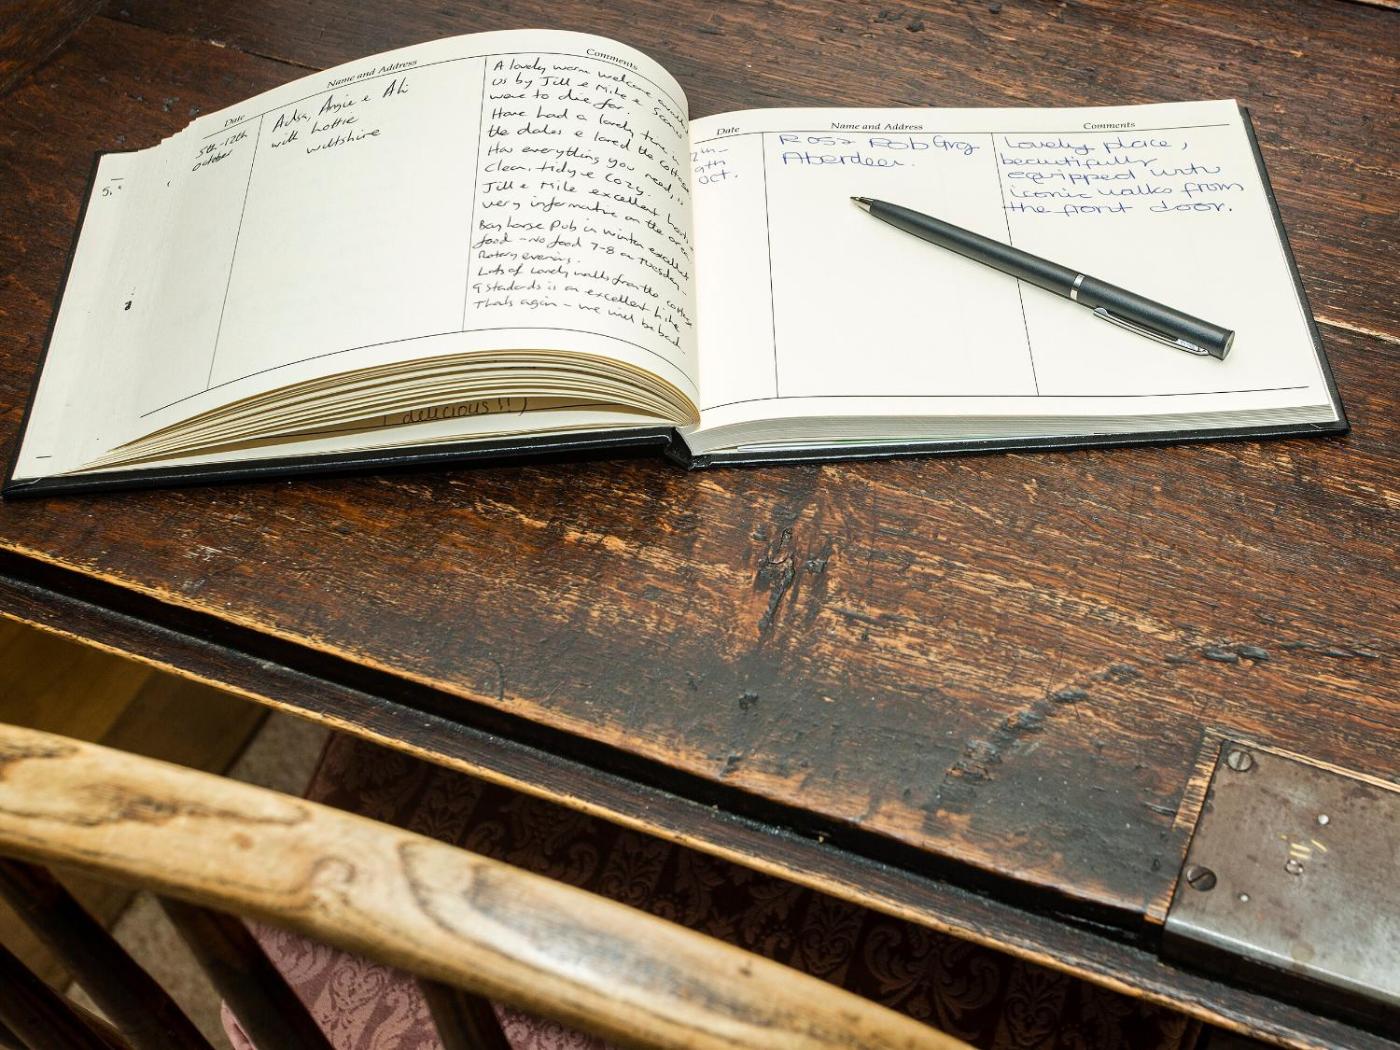 Date
Name and Address
Comments
5th-12th
October
Ailsa, Angie & Ali
with Lottie
Wiltshire
A lovely warm welcome
us by Jill & Mike & Scones
were to die for.
Have had a lovely time in
the dales & loved the cottage
Has everything you need, is
clean, tidy & cozy.
Jill & Mike excellent hosts
very informative on the area.
Bay Horse Pub in winton excellent
food - no food 7-8 on Tuesday -
Rotary evening.
Lots of lovely walks from the cottage
9 Standards is an excellent hike
Thanks again - we will be back.
(delicious!!)
Date
Name and Address
Comments
Oct.
Ross Rob Gray
Aberdeen.
Lovely place,
beautifully
equipped with
iconic walks from
the front door.